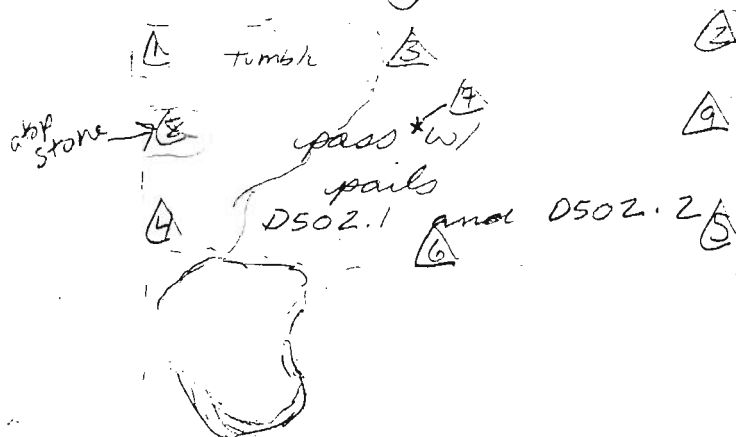 1 tumble 3 2
atop 8 7
stone pass * w/ 9
pails
4 D502.1 and D502.2 5
6